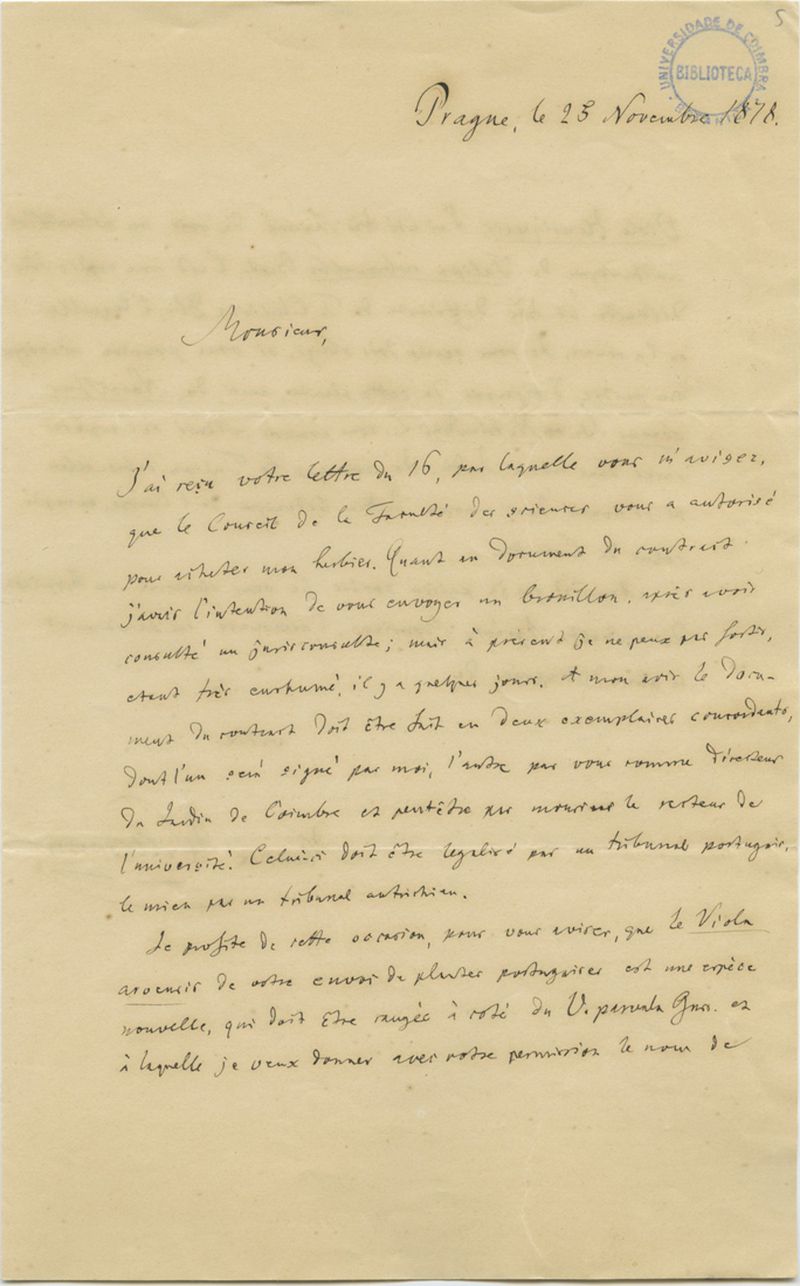 5
UNIVERSIDADE DE COIMBRA
BIBLIOTECA
Prague, le 23 Novembre 1878.
Monsieur,
J'ai reçu votre lettre du 16, par laquelle vous m'avisez,
que le Conseil de la Faculté des sciences vous a autorisé
pour acheter mon herbier. Quant au document du contract
j'avais l'intention de vous envoyer un brouillon, après avoir
consulté un jurisconsulte; mais à présent je ne peux pas sortir,
etant très enrhumé, il y a quelques jours. A mon avis le docu-
ment du contract doit être fait en deux exemplaires concordants,
dont l'un sera signé par moi, l'autre par vous comme directeur
du Jardin de Coimbre et peutêtre par monsieur le recteur de
l'université. Celuici doit être legalisé par un tribunal portugais,
le mien par un tribunal autrichien.
Je profite de cette occasion, pour vous aviser, que le Viola
arvensis de votre envoi de plantes portugaises est une espèce
nouvelle, qui doit être rangée à coté du V. parvula Guss. et
à laquelle je veux donner avec votre permission le nom de